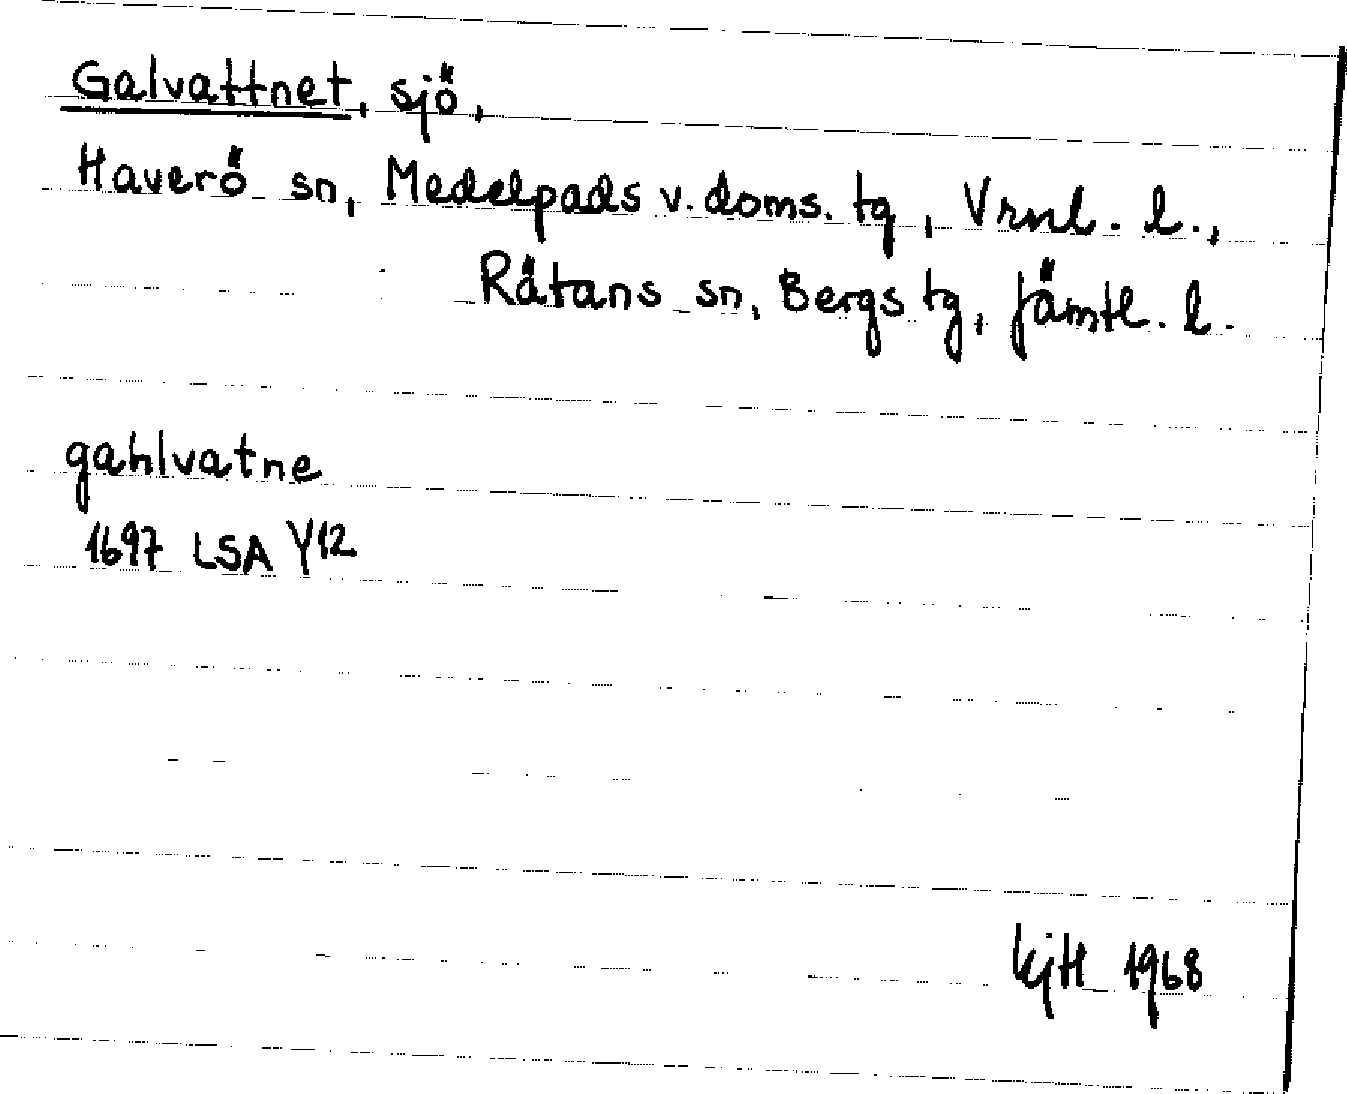 Galvattnet, sjö,
Haverö sn, Medelpads v. doms. tg, Vrnl. l.,
Rätans sn, Bergs tg, Jämtl. l.
gahlvatne
1697 LSA Y12
KjH 1968